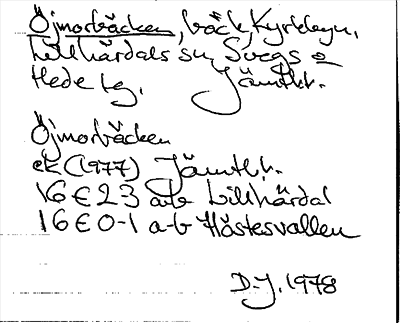 Öjmorbäcken, bäck, Kyrkbyn,
Lillhärdals sn Svegs o
Hede tg. Jämtl.l.
Öjmorbäcken
ek (1977) Jämtl.l.
16 E 2-3 a-b Lillhärdal
16 E 0-1 a-b Hästesvallen
D-J. 1978